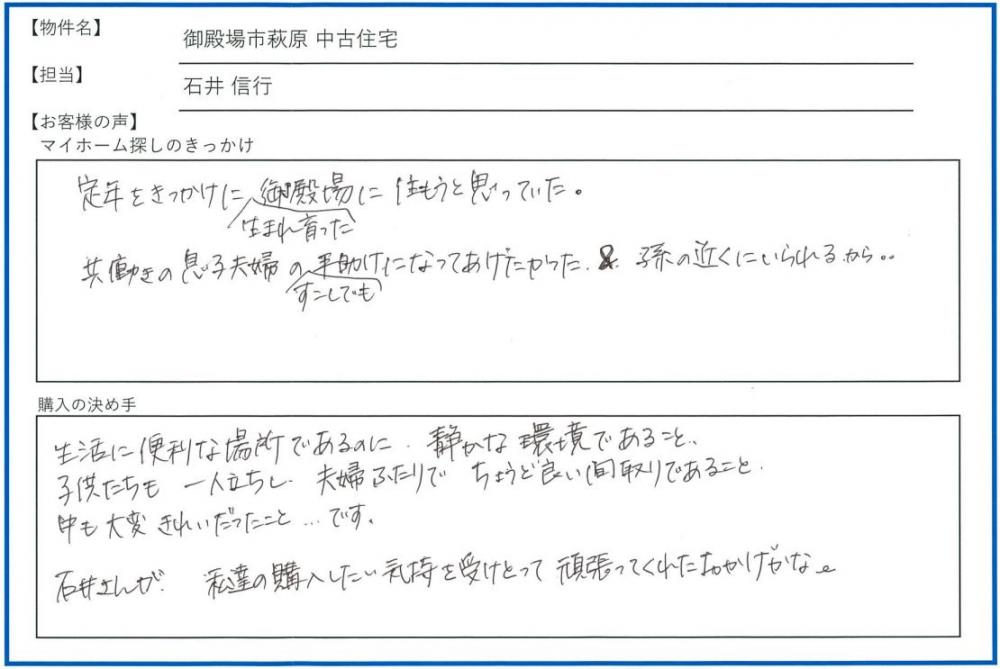 【物件名】
御殿場市萩原 中古住宅
【担当】
石井 信行
【お客様の声】
マイホーム探しのきっかけ
定年をきっかけに 御殿場に 住もうと思っていた。
生まれ育った
共働きの息子夫婦の手助けになってあげたかった & 孫の近くにいられるから..
すこしでも
購入の決め手
生活に便利な場所であるのに、静かな環境であること、
子供たちも 一人立ちし、夫婦ふたりで ちょうど良い間取りであること、
中も大変きれいだったこと…です。
石井さんが、私達の購入したい気持を受けとって 頑張ってくれたおかげかな。